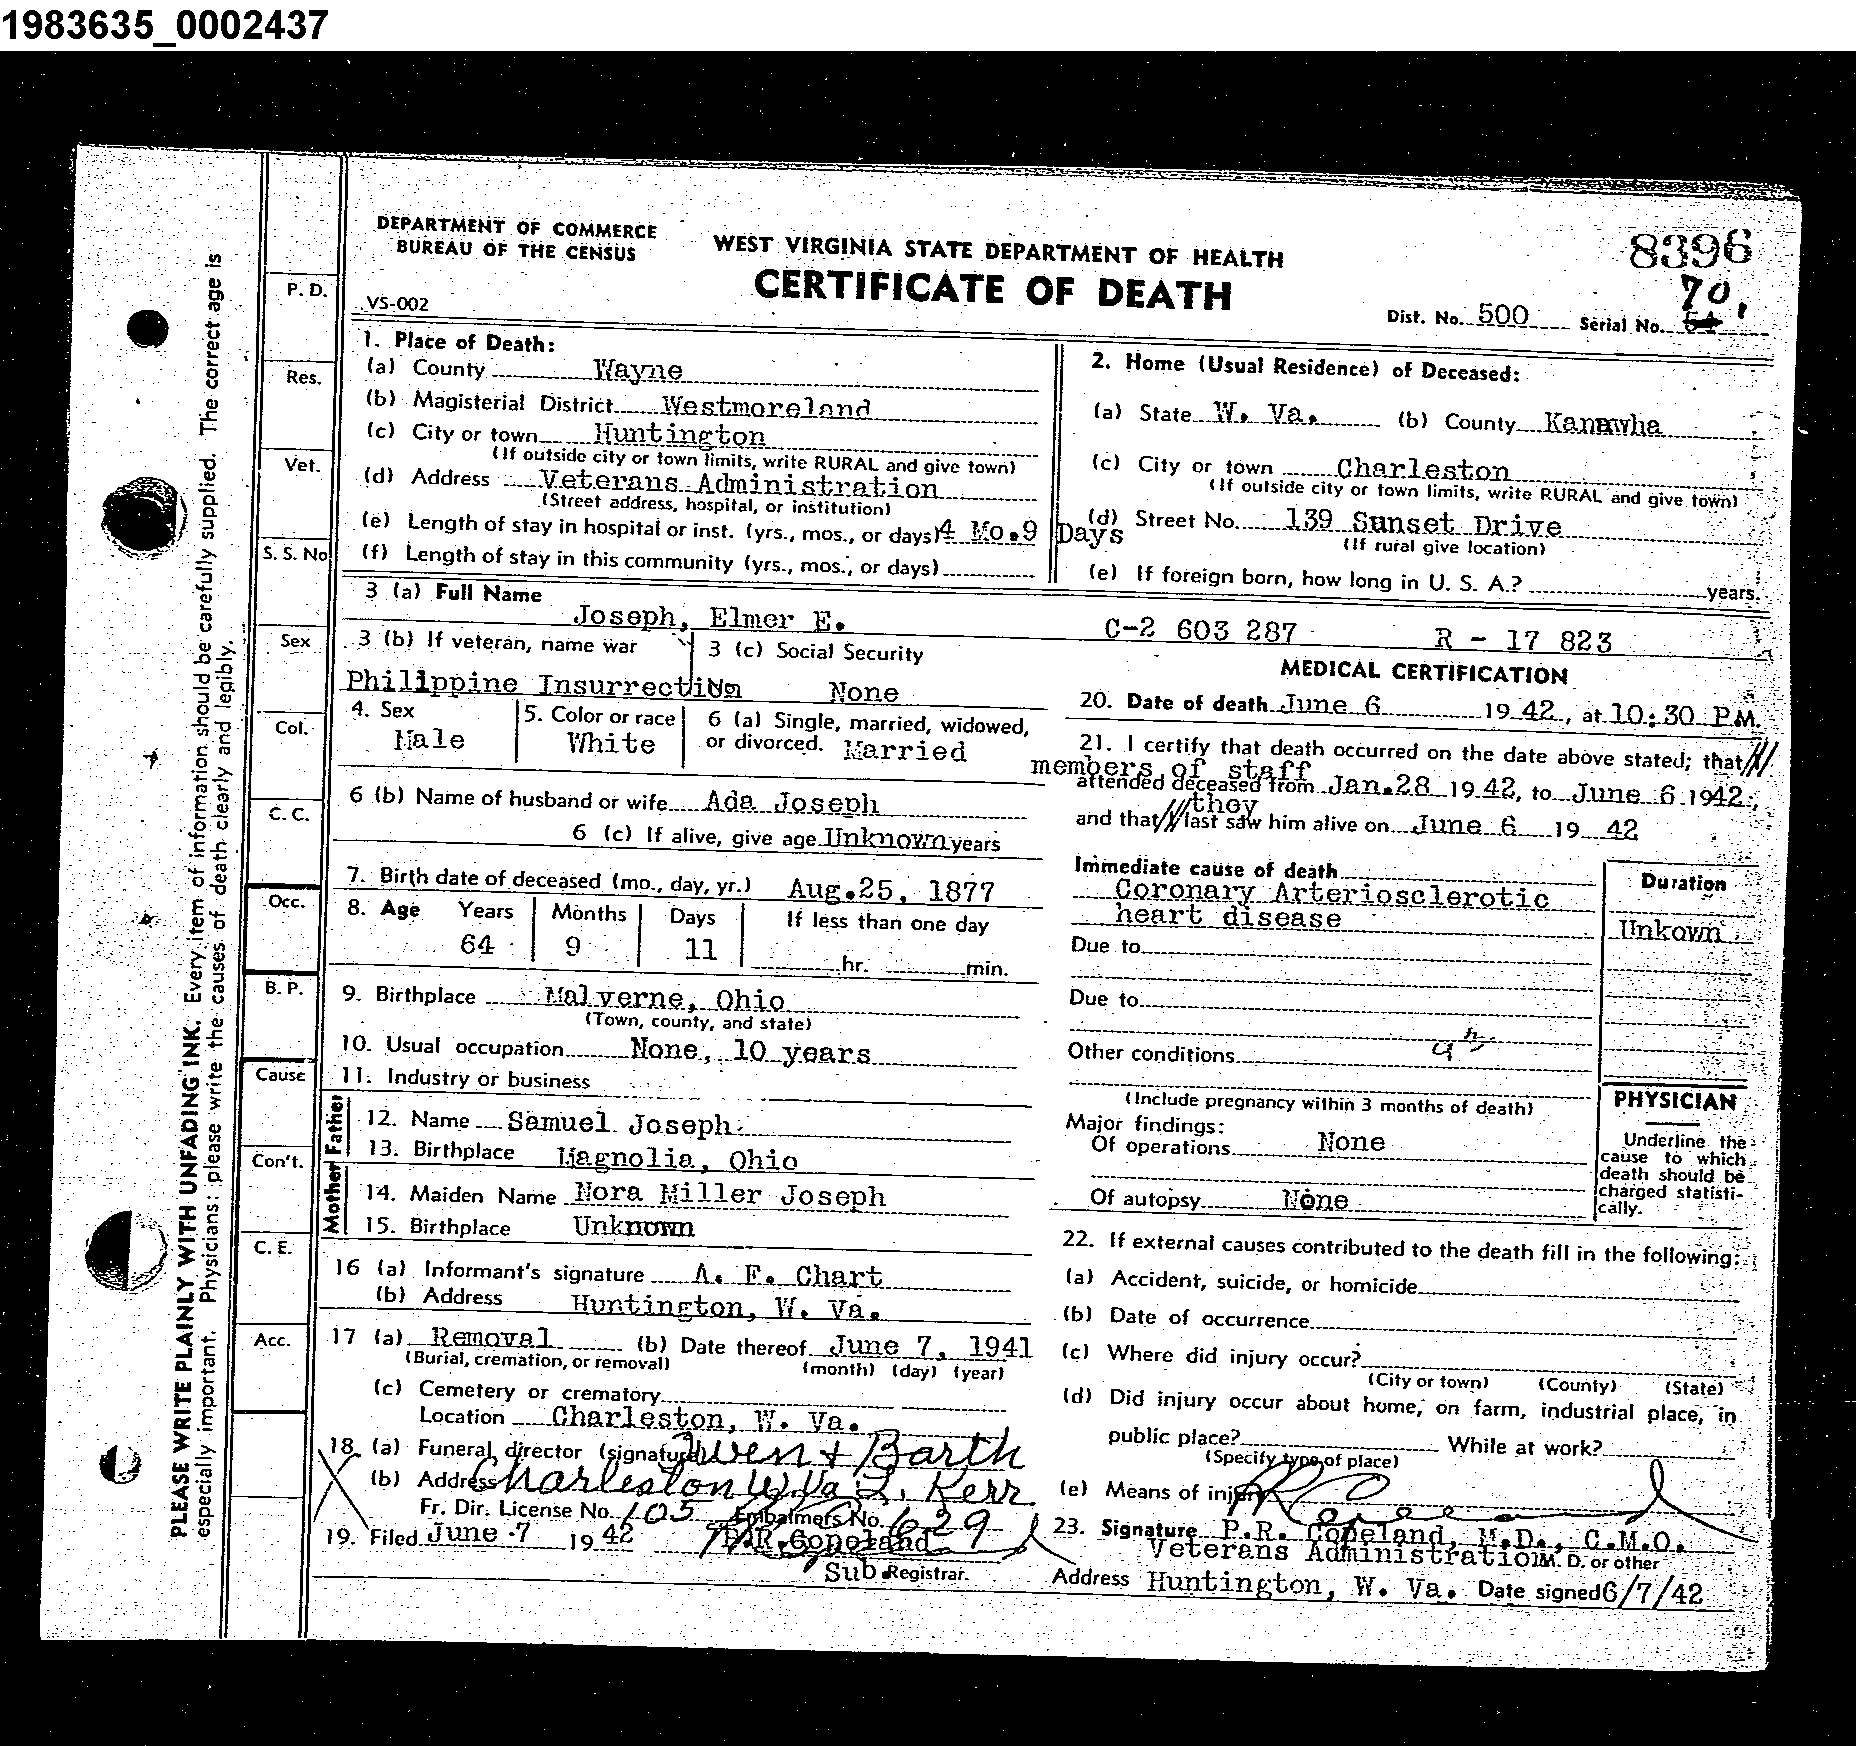 1983635_0002437
DEPARTMENT OF COMMERCE
BUREAU OF THE CENSUS
WEST VIRGINIA STATE DEPARTMENT OF HEALTH
CERTIFICATE OF DEATH
8396
70.
VS-002
Dist. No. 500 Serial No.
1. Place of Death:
(a) County Wayne
(b) Magisterial District Westmoreland
(c) City or town Huntington
(If outside city or town limits, write RURAL and give town)
(d) Address Veterans Administration
(Street address, hospital, or institution)
(e) Length of stay in hospital or inst. (yrs., mos., or days) 4 Mo. 9 Days
(f) Length of stay in this community (yrs., mos., or days)
2. Home (Usual Residence) of Deceased:
(a) State W. Va. (b) County Kanawha
(c) City or town Charleston
(If outside city or town limits, write RURAL and give town)
(d) Street No. 139 Sunset Drive
(If rural give location)
(e) If foreign born, how long in U. S. A.? years.
3 (a) Full Name
Joseph, Elmer E. C-2 603 287 R - 17 823
3 (b) If veteran, name war
Philippine Insurrection
3 (c) Social Security
No. None
4. Sex
Male
5. Color or race
White
6 (a) Single, married, widowed,
or divorced. Married
6 (b) Name of husband or wife Ada Joseph
6 (c) If alive, give age Unknown years
7. Birth date of deceased (mo., day, yr.) Aug. 25, 1877
8. Age Years Months Days If less than one day
64 9 11 hr. min.
9. Birthplace Malverne, Ohio
(Town, county, and state)
10. Usual occupation None, 10 years
11. Industry or business
Father
12. Name Samuel Joseph
13. Birthplace Magnolia, Ohio
Mother
14. Maiden Name Nora Miller Joseph
15. Birthplace Unknown
16 (a) Informant's signature A. F. Chart
(b) Address Huntington, W. Va.
17 (a) Removal (b) Date thereof June 7, 1941
(Burial, cremation, or removal) (month) (day) (year)
(c) Cemetery or crematory
Location Charleston, W. Va.
18 (a) Funeral director (signature) Owen + Barth
(b) Address Charleston W. Va L. Kerr
Fr. Dir. License No. 105 Embalmers No. 629
19. Filed June 7 19 42 P.R. Copeland
Sub Registrar.
MEDICAL CERTIFICATION
20. Date of death June 6 19 42, at 10:30 P.M.
21. I certify that death occurred on the date above stated; that
members of staff
attended deceased from Jan. 28 19 42, to June 6 1942,
they
and that last saw him alive on June 6 19 42
Immediate cause of death
Coronary Arteriosclerotic
heart disease
Duration
Unkown
Due to
Due to
Other conditions
(Include pregnancy within 3 months of death)
Major findings:
Of operations None
Of autopsy None
PHYSICIAN
Underline the
cause to which
death should be
charged statisti-
cally.
22. If external causes contributed to the death fill in the following:
(a) Accident, suicide, or homicide
(b) Date of occurrence
(c) Where did injury occur?
(City or town) (County) (State)
(d) Did injury occur about home, on farm, industrial place, in
public place? While at work?
(Specify type of place)
(e) Means of injury
23. Signature P.R. Copeland, M.D., C.M.O.
Veterans Administration M. D. or other
Address Huntington, W. Va. Date signed 6/7/42
P. D.
Res.
Vet.
S. S. No
Sex
Col.
C. C.
Occ.
B. P.
Cause
Con't.
C. E.
Acc.
PLEASE WRITE PLAINLY WITH UNFADING INK. Every item of information should be carefully supplied. The correct age is
especially important. Physicians: please write the causes of death clearly and legibly.